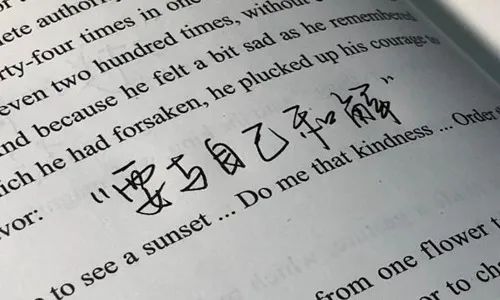 lete author
rty-four times in one
even two hundred times, without
And because he felt a bit sad as he remembered
which he had forsaken, he plucked up his courage to
vor:
“要与自己和解”
to see a sunset ... Do me that kindness ... Order
from one flower t
or to cha